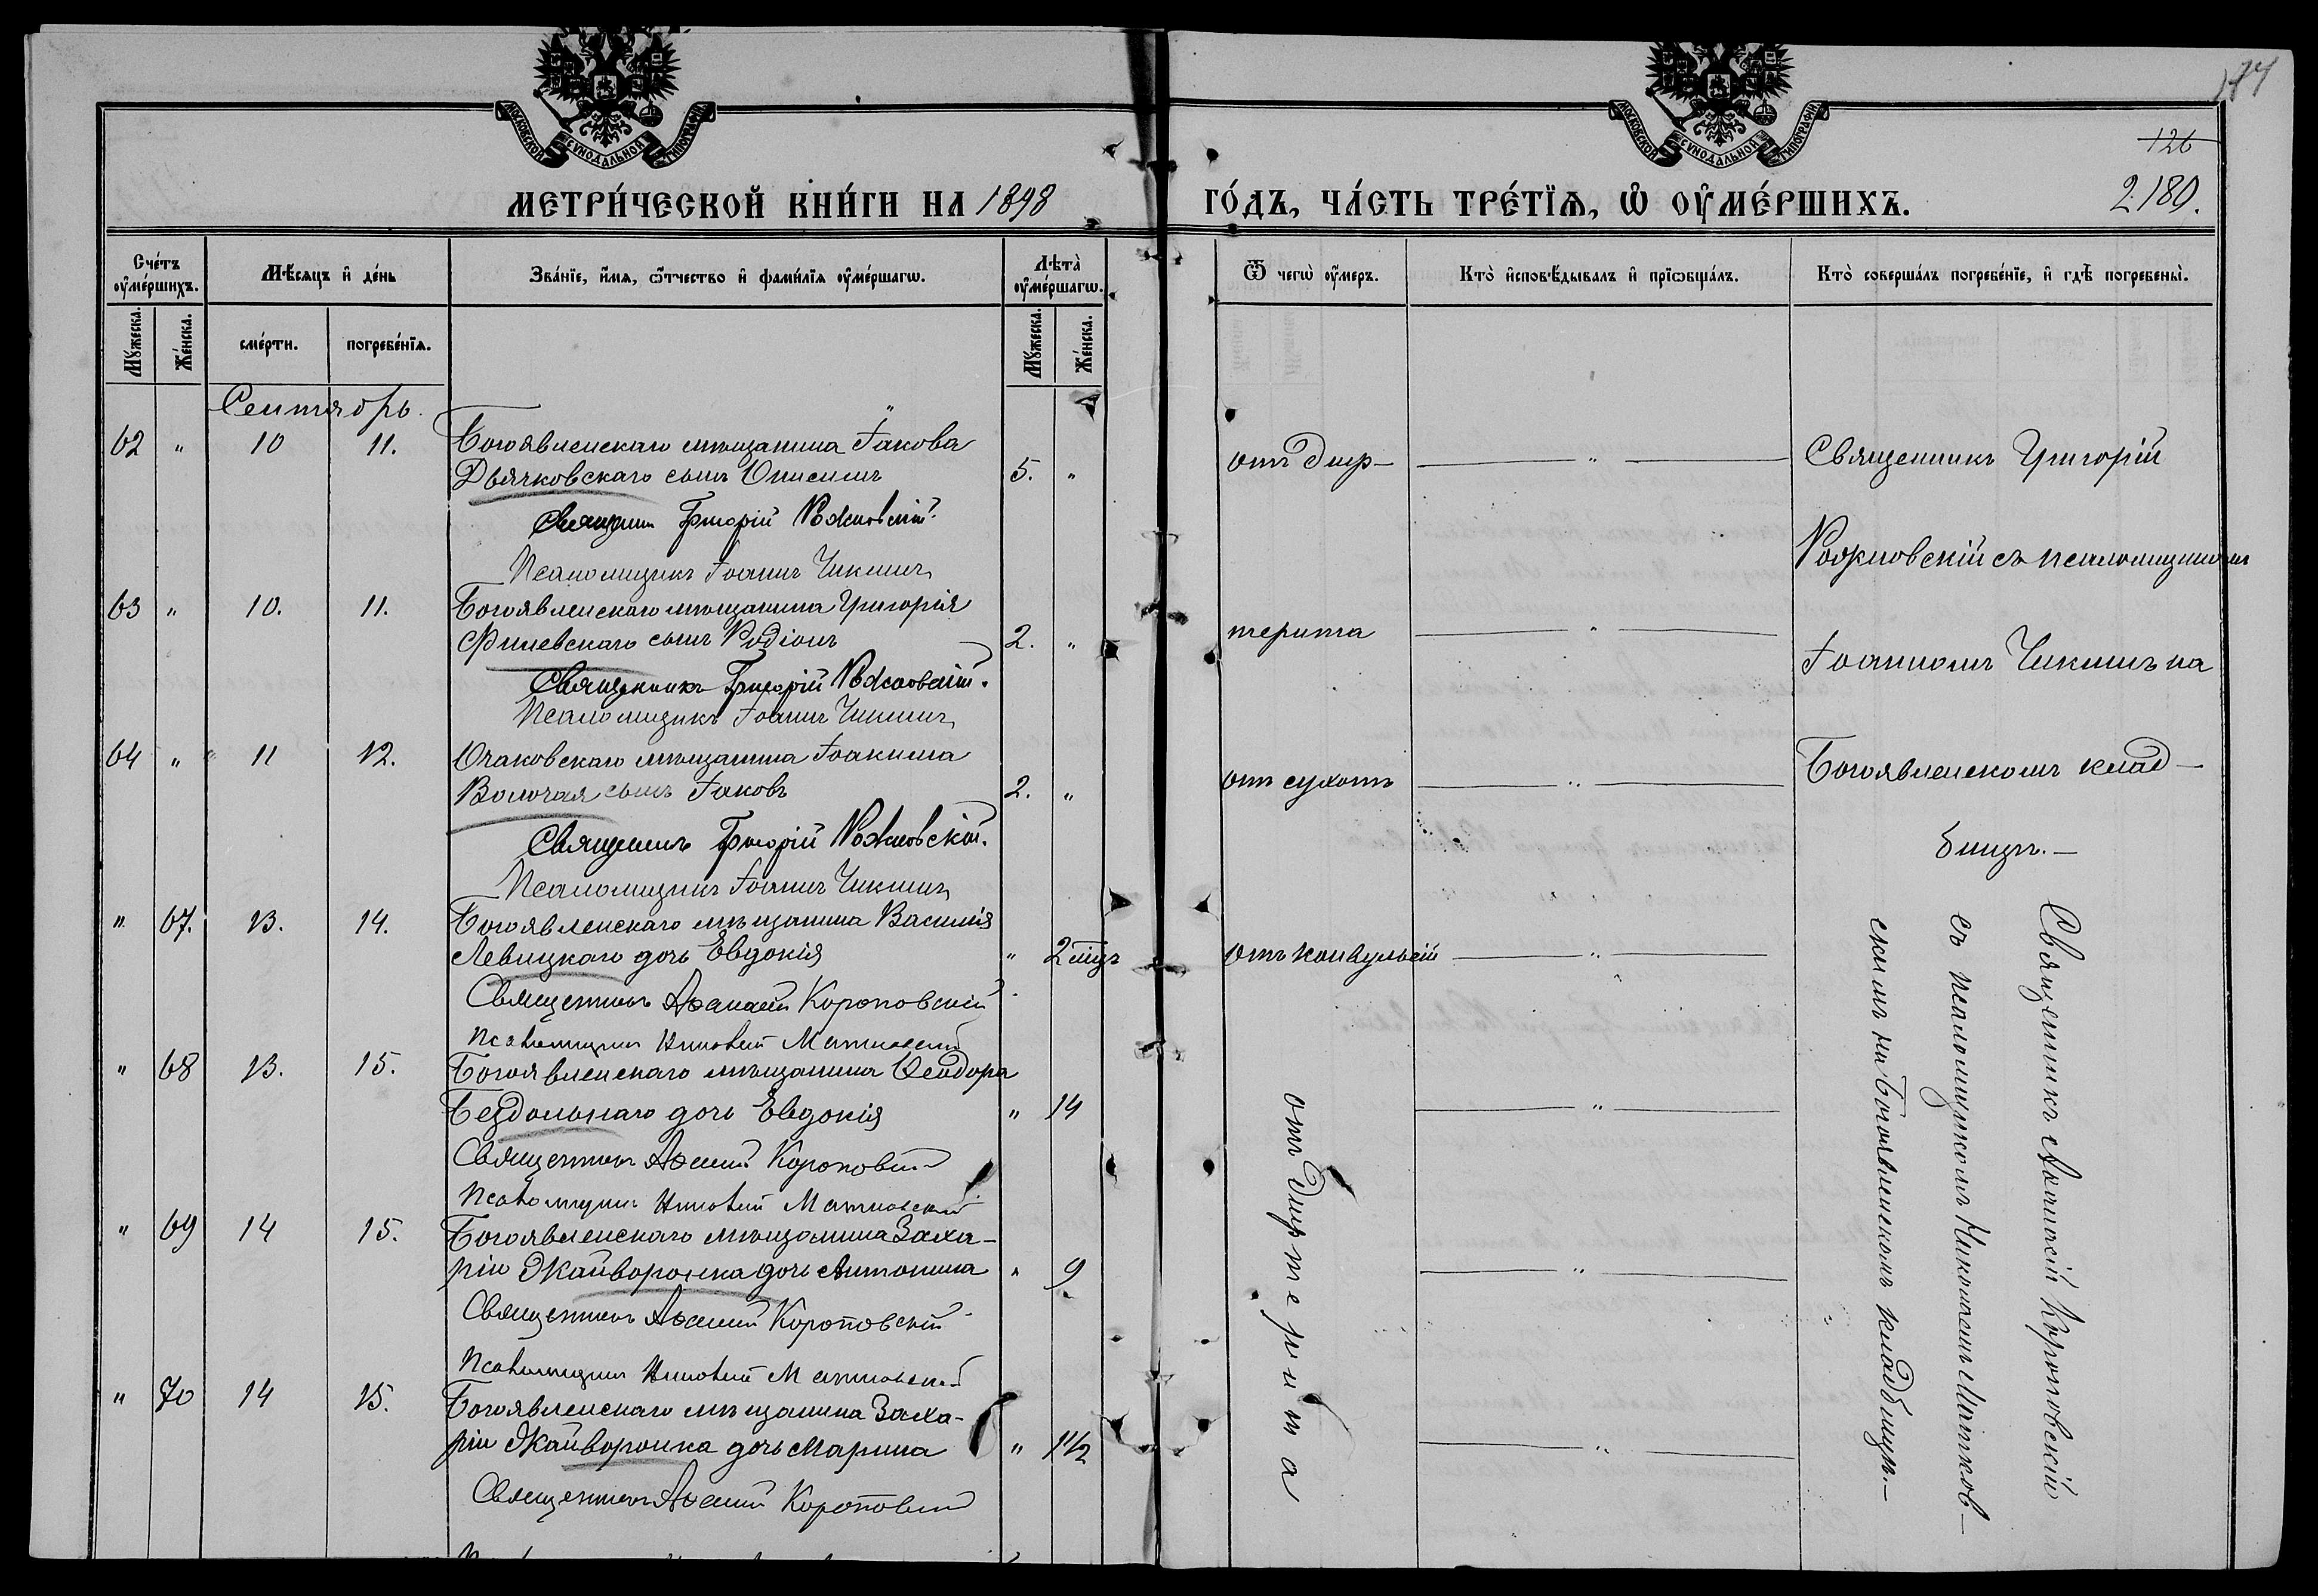 МОСКОВСКОЙ СѴНОДАЛЬНОЙ ТИПОГРАФІИ
МЕТРИ́ЧЕСКОЙ КНИ́ГИ НА 1898
Сче́тъ оу҆ме́ршихъ.
Мѣ́сяцъ и҆ де́нь
Зва́нїе, и҆́мя, ѻ҆́тчество и҆ фами́лїя оу҆ме́ршагѡ.
Лѣта̀ оу҆ме́ршагѡ.
Мꙋ́жеска.
Же́нска.
сме́рти.
погребе́нїя.
Мꙋ́жеска.
Же́нска.
Сентябрь.
62 " 10 11. Богоявленскаго мѣщанина Іакова
Дьячковскаго сынъ Онисимъ 5. "
Священникъ Григорій Рожновскій.
Псаломщикъ Іоаннъ Чикинъ
63 " 10. 11. Богоявленскаго мѣщанина Григорія
Филевскаго сынъ Родіонъ 2. "
Священникъ Григорій Рожновскій.
Псаломщикъ Іоаннъ Чикинъ
64 " 11 12. Очаковскаго мѣщанина Іоакима
Волочая сынъ Іаковъ 2. "
Священникъ Григорій Рожновскій.
Псаломщикъ Іоаннъ Чикинъ
" 67. 13. 14. Богоявленскаго мѣщанина Василія
Левицкаго дочь Евдокія " 2 мцъ
Священникъ Аѳанасій Короповскій
Псаломщикъ Николай Матковскій
" 68 13. 15. Богоявленскаго мѣщанина Ѳеодора
Бездольнаго дочь Евдокія " 14
Священникъ Аѳанасій Короповскій
Псаломщикъ Николай Матковскій
" 69 14 15. Богоявленскаго мѣщанина Заха-
рін Жайворонка дочь Антонина " 9
Священникъ Аѳанасій Короповскій
Псаломщикъ Николай Матковскій
" 70 14 15. Богоявленскаго мѣщанина Заха-
рін Жайворонка дочь Марина " 1 1/2
Священникъ Аѳанасій Короповскій
МОСКОВСКОЙ СѴНОДАЛЬНОЙ ТИПОГРАФІИ
126
2180.
ГО́ДЪ, ЧА́СТЬ ТРЕ́ТЇѦ, Ѡ҆ ОУ҆МЕ́РШИХЪ.
Ѿ чегѡ̀ оу҆́меръ.
Кто̀ и҆сповѣ́дывалъ и҆ прїѻбща́лъ.
Кто̀ соверша́лъ погребе́нїе, и҆ гдѣ̀ погребены̀.
отъ диф- " Священникъ Григорій
Рожновскій съ псаломщикомъ
терита "
Іоанномъ Чикинъ на
отъ сухотъ " Богоявленскомъ клад-
бищѣ.-
отъ конвульсій "
"
"
"
отъ дифтерита
Священникъ Аѳанасій Короповскій
съ псаломщикомъ Николаемъ Матков-
скимъ на Богоявленскомъ кладбищѣ.-